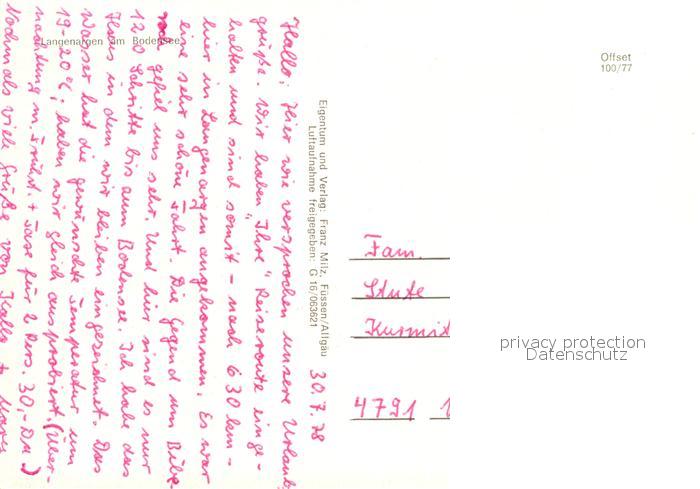 Langenargen am Bodensee
Hallo! Hier wie versprochen unsere Urlaubs
grüße. Wir haben "Ihre" Reiseroute einge-
halten und sind somit - nach 630 km -
hier in Langenargen angekommen. Es war
eine sehr schöne Fahrt. Die Gegend um Bibe-
gefiel uns sehr. Und hier sind es nur
1200 Schritte bis zum Bodensee. Ich habe das
Haus in dem wir bleiben eingezeichnet. Das
Wasser hat die gewünschte Temperatur um
19-20°C, haben wir gleich ausprobiert. (Über-
nachtung m. Frühst. + Taxe für 2 Pers. 30,- DM)
Nochmals viele Grüße von
30.7.78
Eigentum und Verlag: Franz Milz, Füssen/Allgäu
Luftaufnahme freigegeben: G 16/063621
Offset
100/77
Fam.
Stute
4791
privacy protection
Datenschutz